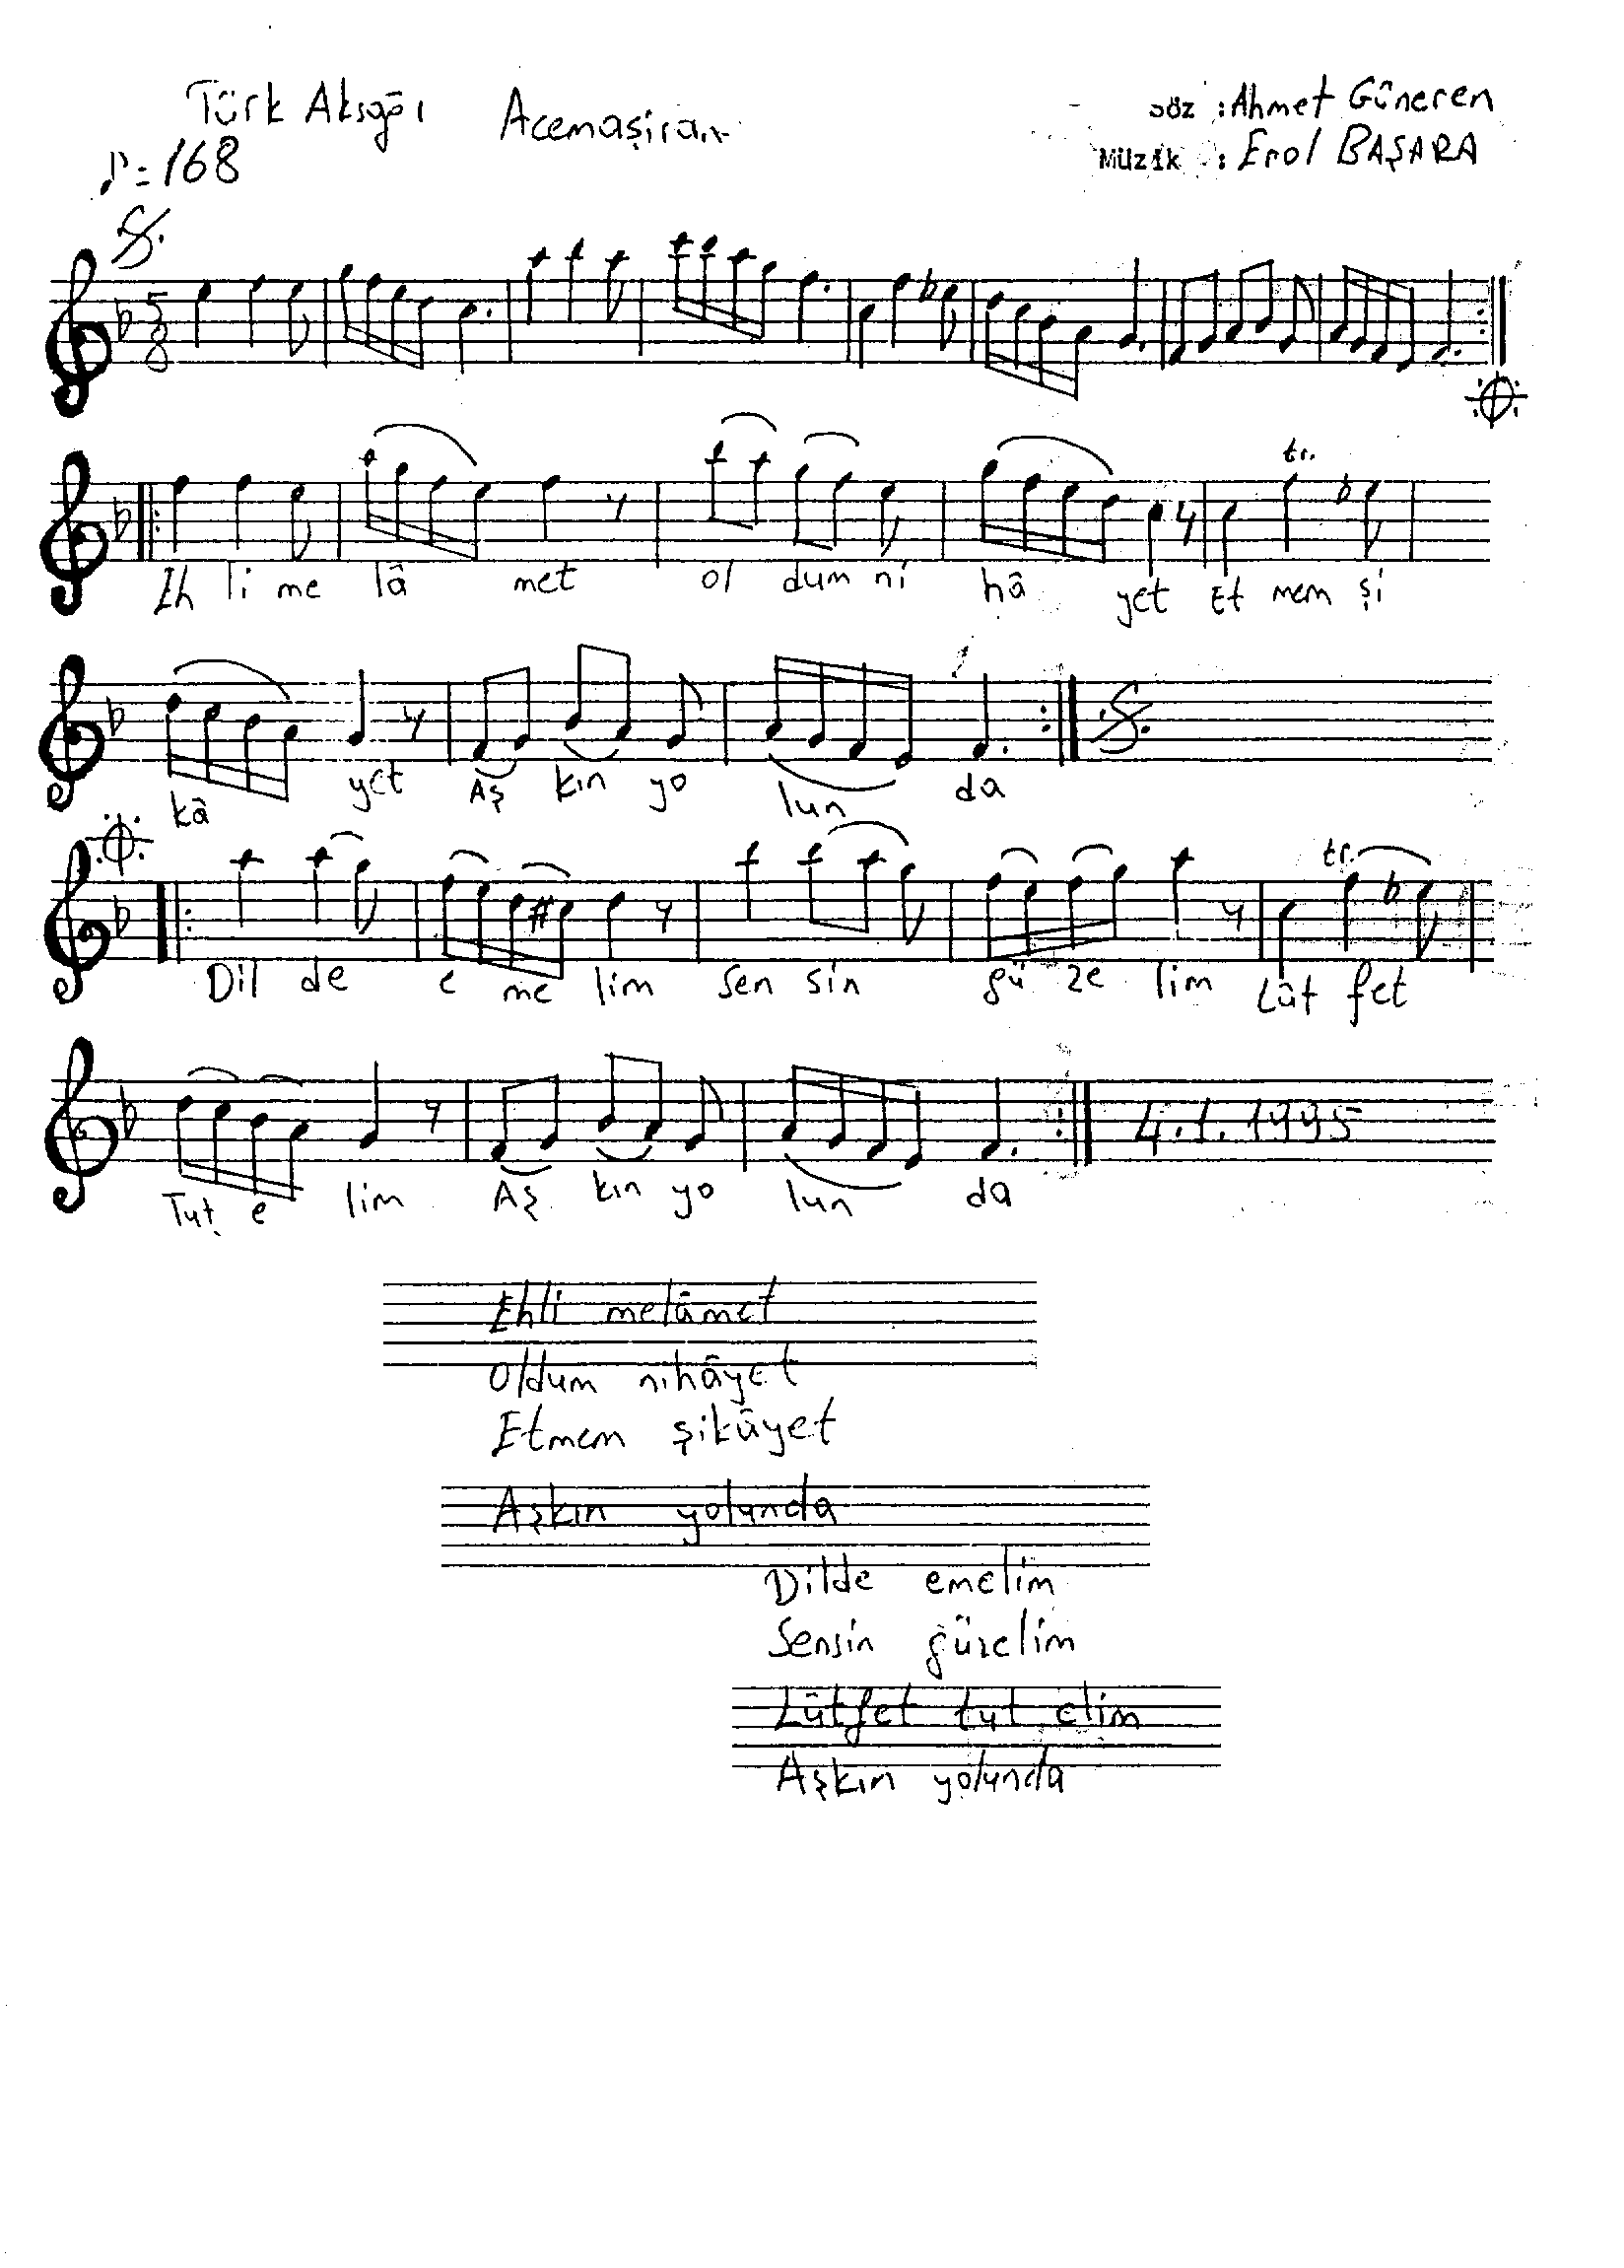 Türk Aksağı Acemaşiran söz : Ahmet Güneren
♪ = 168 Müzik : Erol BAŞARA
5
8
tr.
Eh li me lâ met ol dum ni hâ yet Et mem şi
kâ yet Aş kın yo lun da
tr.
Dil de e me lim sen sin gü ze lim Lût fet
Tut e lim Aş kın yo lun da
4.1.1995
Ehli melâmet
Oldum nihâyet
Etmem şikâyet
Aşkın yolunda
Dilde emelim
Sensin güzelim
Lûtfet tut elim
Aşkın yolunda